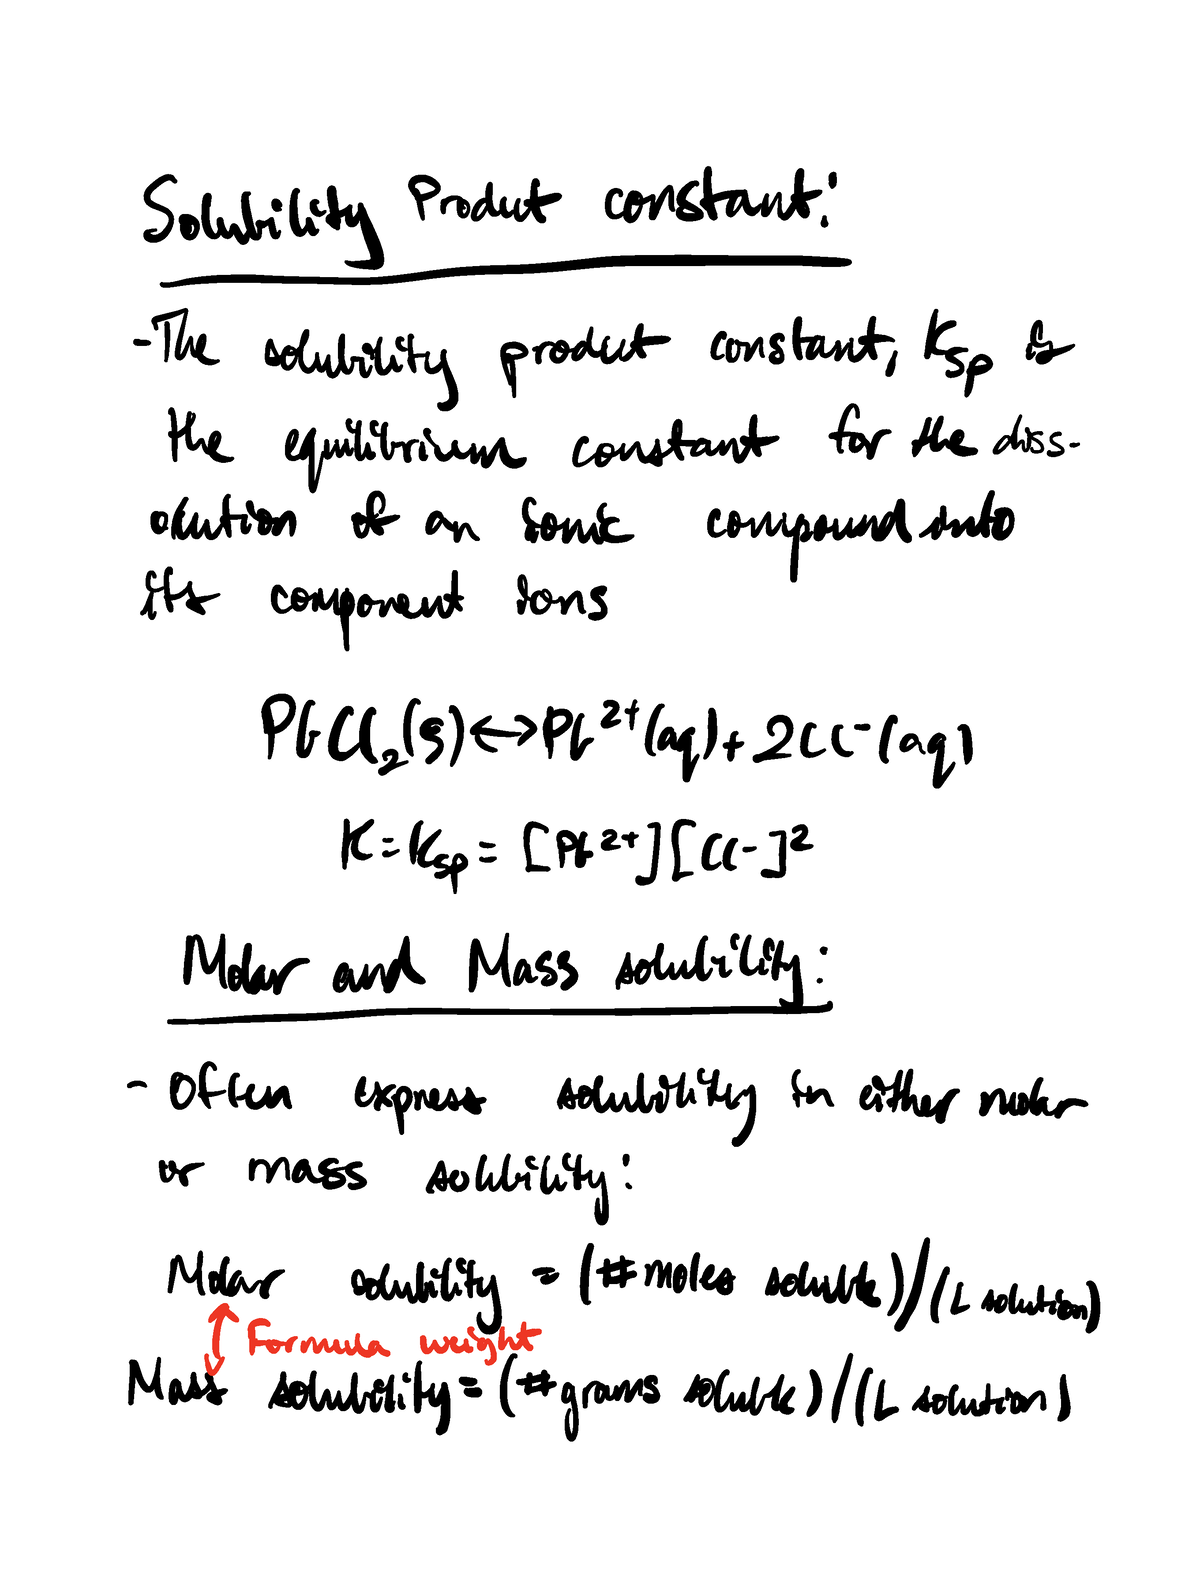 Solubility Product constant:
-The solubility product constant, Ksp is
the equilibrium constant for the diss-
olution of an ionic compound into
its component ions
PbCl₂(s)↔Pb²⁺(aq)+2Cl⁻(aq)
K=Ksp=[Pb²⁺][Cl⁻]²
Molar and Mass solubility:
- Often express solubility in either molar
or mass solubility:
Molar solubility = (#moles soluble)/(L solution)
Formula weight
Mass solubility=(#grams soluble)/(L solution)